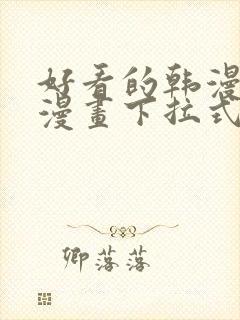 好看的韩漫
漫畫下拉式
卿落落